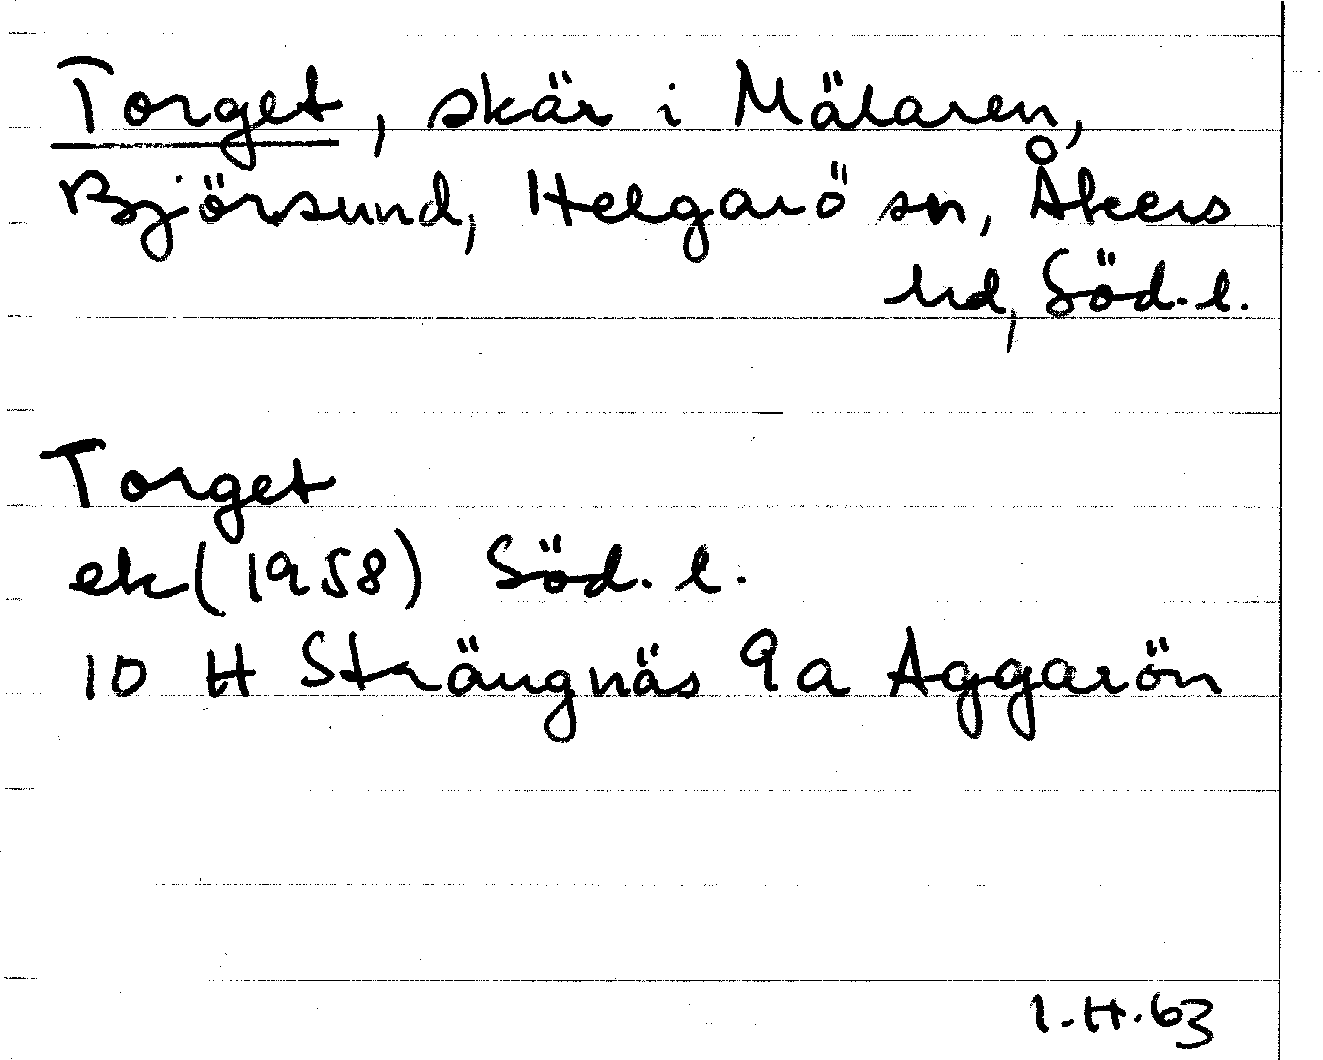 Torget, skär i Mälaren,
Björsund, Helgarö sn, Åkers
hd, Söd. l.
Torget
ek (1958) Söd. l.
10 H Strängnäs 9a Aggarön
I.H.63